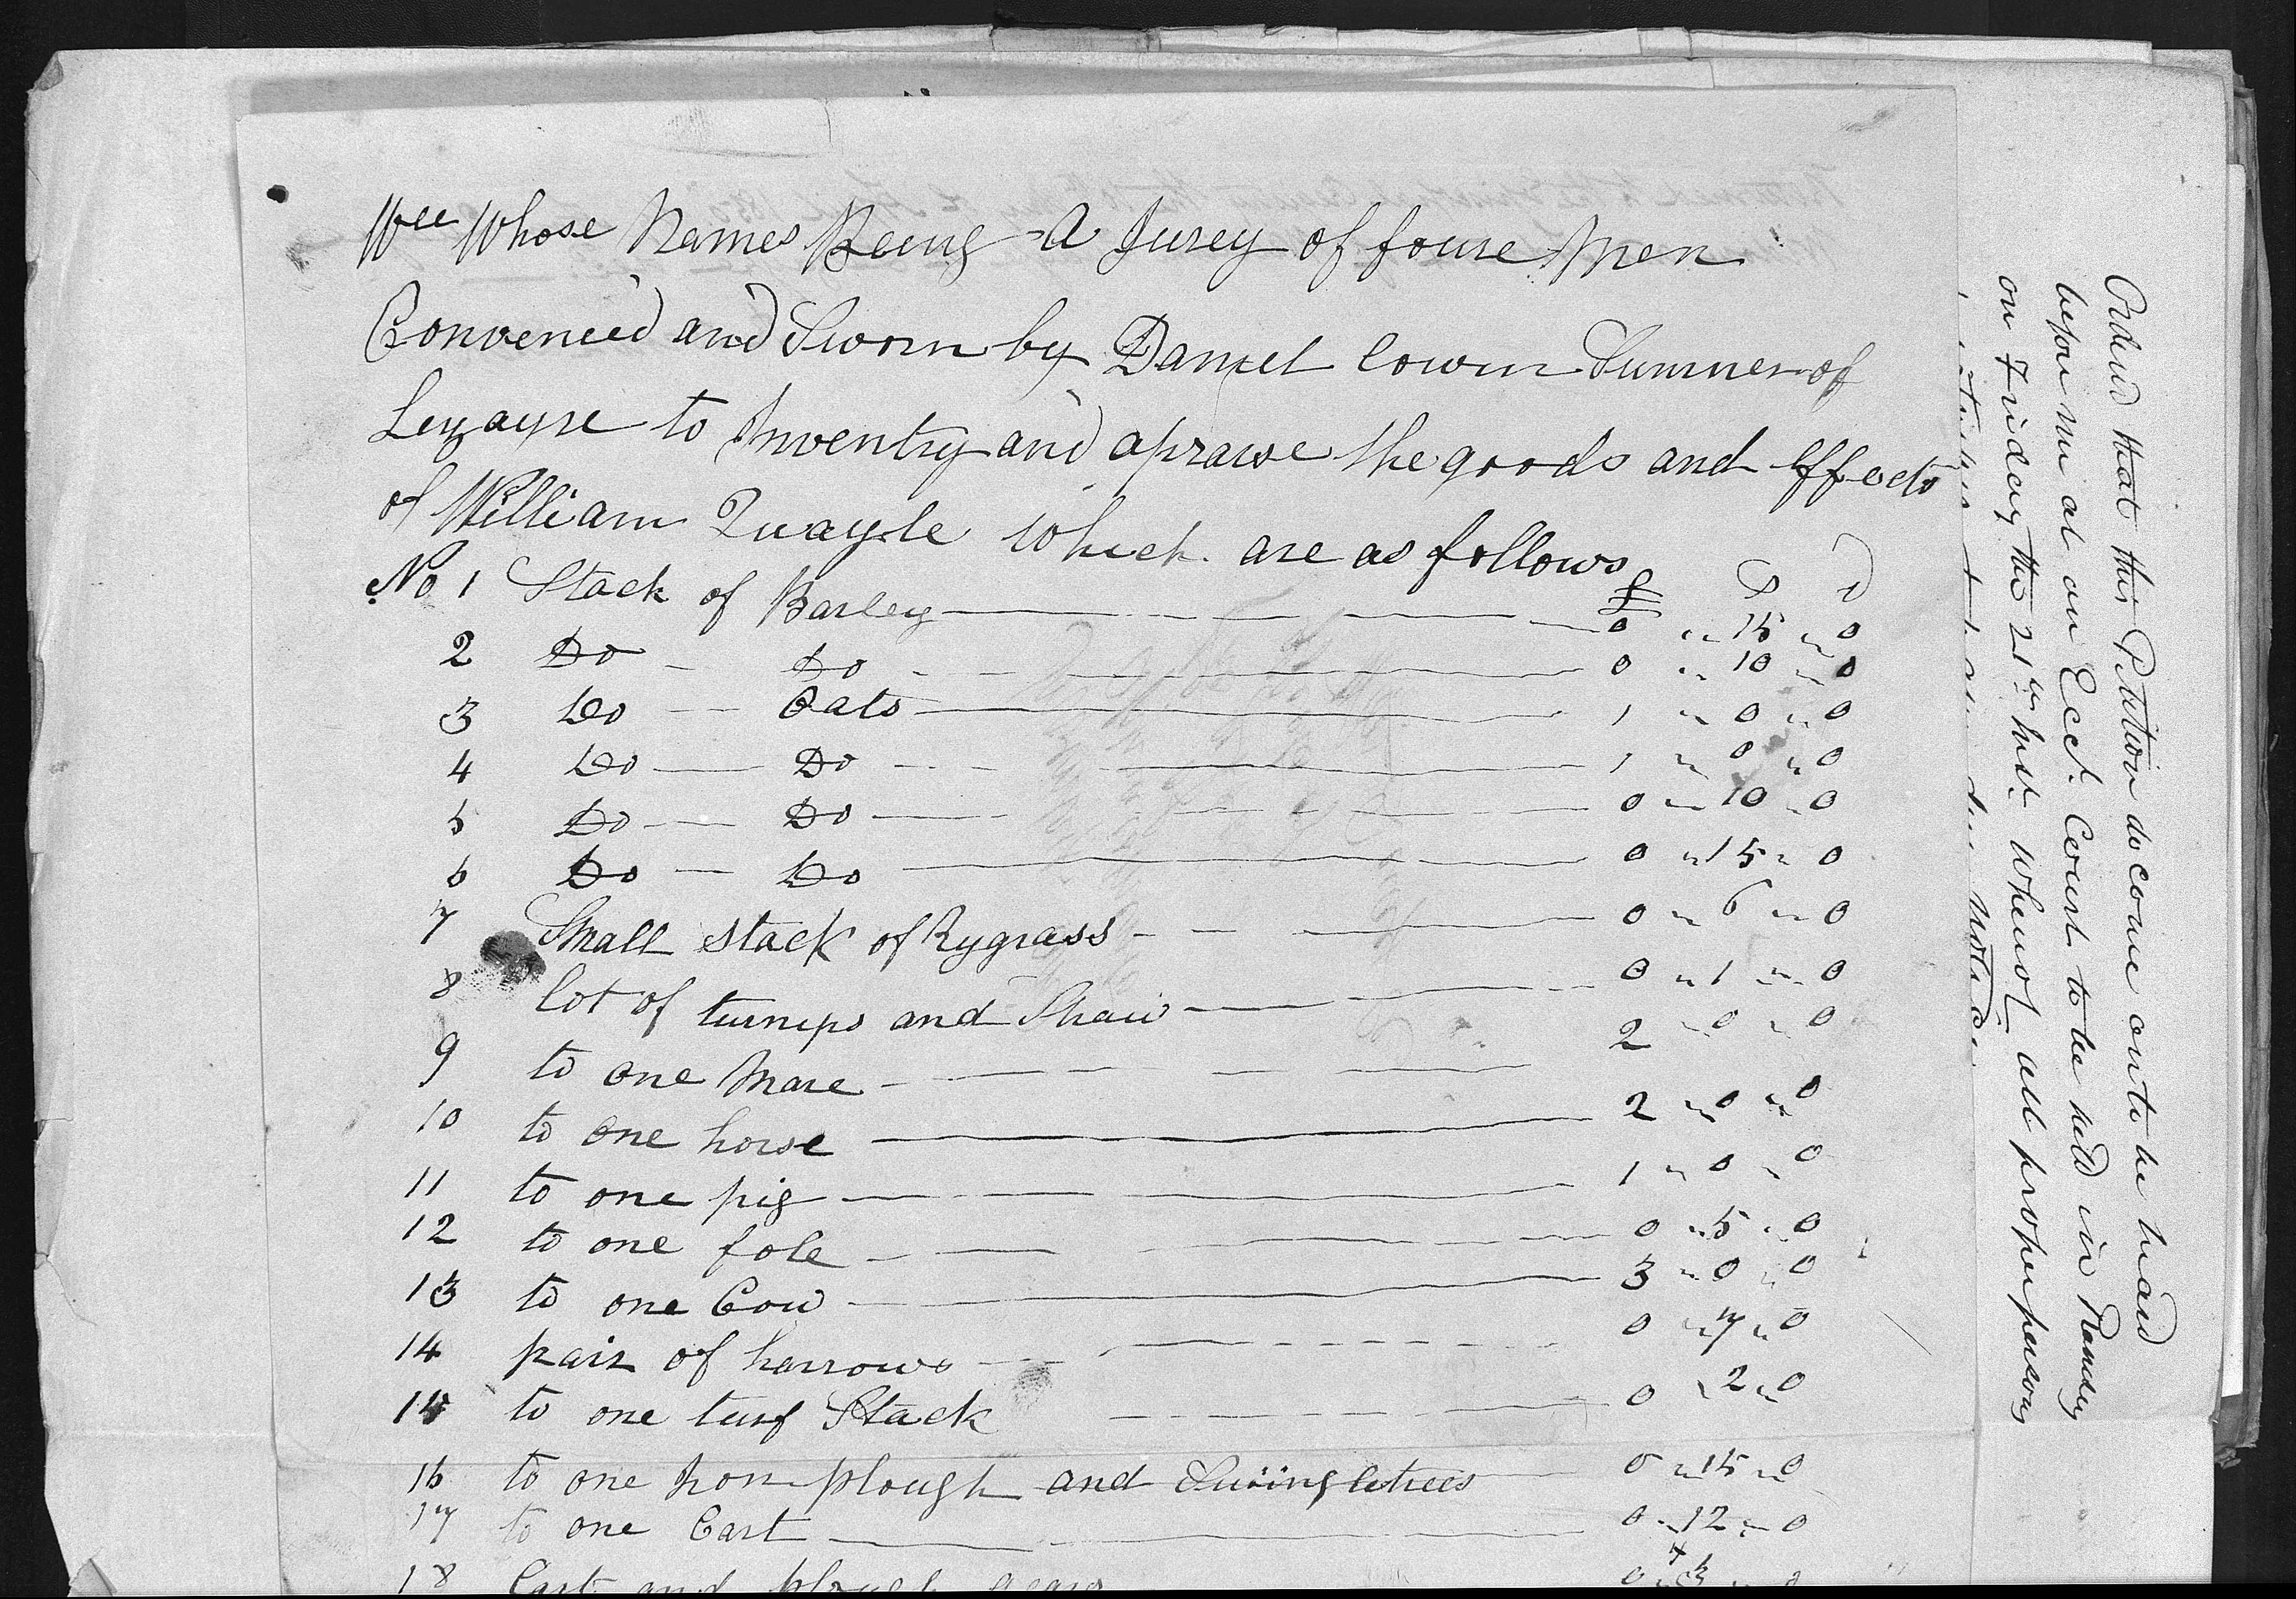 Wee Whose Names Being A Jurey of foure Men
Conveneed and Sworn by Daniel Cowin Sumner of
Lezayre to Inventry and apraise the goods and Effects
of William Quayle which are as follows
£ S D
No 1 Stack of Barley 0 " 15 " 0
2 Do Do 0 " 10 " 0
3 Do Oats 1 " 0 " 0
4 Do Do 1 " 0 " 0
5 Do Do 0 " 10 " 0
6 Do Do 0 " 15 " 0
7 Small stack of Rygrass 0 " 6 " 0
8 lot of turneps and Straw 0 " 1 " 0
9 to one Mare 2 " 0 " 0
10 to one horse 2 " 0 " 0
11 to one pig 1 " 0 " 0
12 to one fole 0 " 5 " 0
13 to one Cow 3 " 0 " 0
14 pair of harrows 0 " 7 " 0
15 to one turf Stack 0 " 2 " 0
16 to one Iron plough and Swingletrees 0 " 15 " 0
17 to one Cart 0 " 12 " 0
18 Cart and plough gears
Ordered that this Petition do come on to be heard
before me at an Eccl. Court to be held in Ramsey
on Friday the 21st Inst. whereof all proper persons
notice